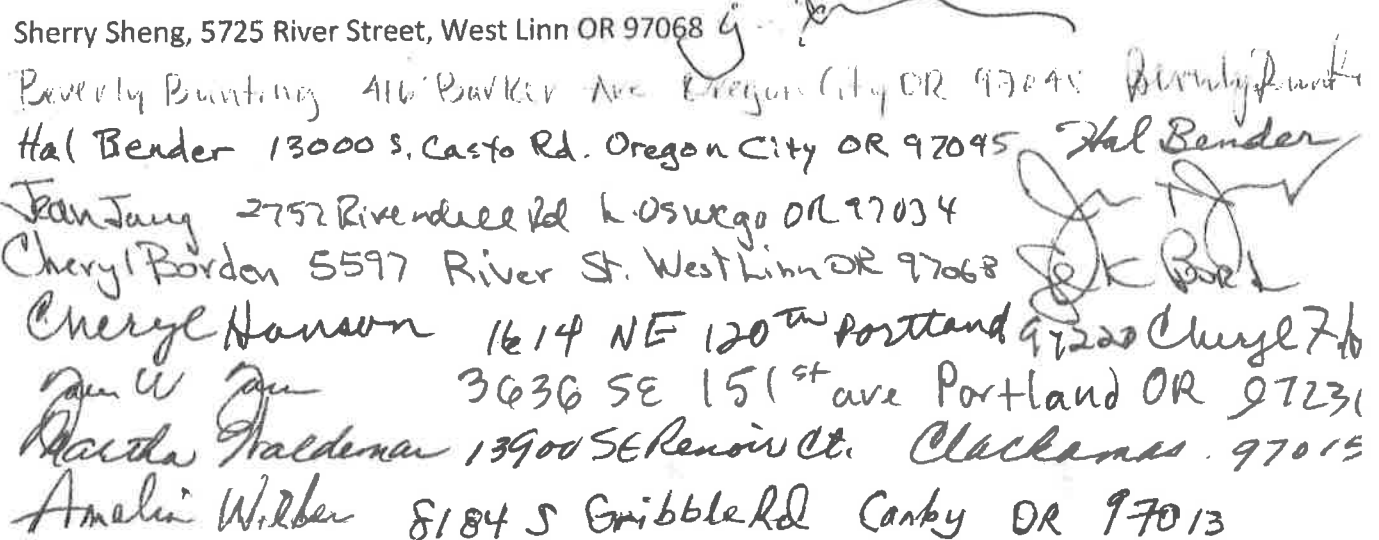 Sherry Sheng, 5725 River Street, West Linn OR 97068
Beverly Bunting 416 Barker Ave Oregon City OR 97045 Beverly Bunti
Hal Bender 13000 S. Casto Rd. Oregon City OR 97045 Hal Bender
Jean Jang 2752 Rivendell Rd L. Oswego OR 97034
Cheryl Borden 5597 River St. West Linn OR 97068
Cheryl Hanson 1614 NE 120th Portland 97220 Cheryl
3636 SE 151st ave Portland OR 9723
Martha Waldemar 13900 SE Renoir Ct. Clackamas. 97015
Amelia Wilber 8184 S Gribble Rd Canby OR 97013